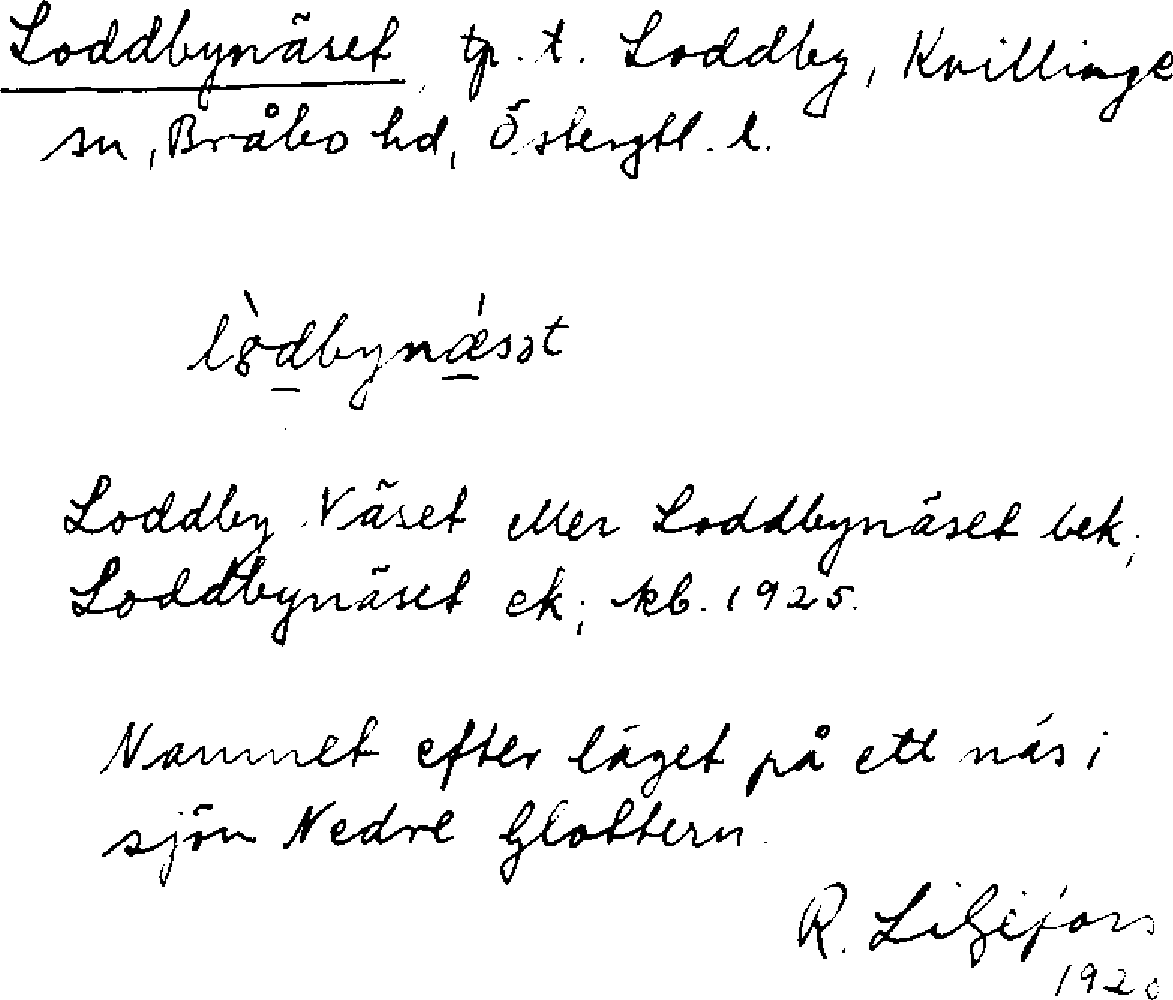 Loddbynäset, tp. t. Loddby, Kvillinge
sn, Bråbo hd, Östergtl. l.
lòdbynǽsət
Loddby Näset eller Loddbynäset bek;
Loddbynäset ek; kb. 1925.
Namnet efter läget på ett näs i
sjön Nedre Glottern.
R. Liljefors